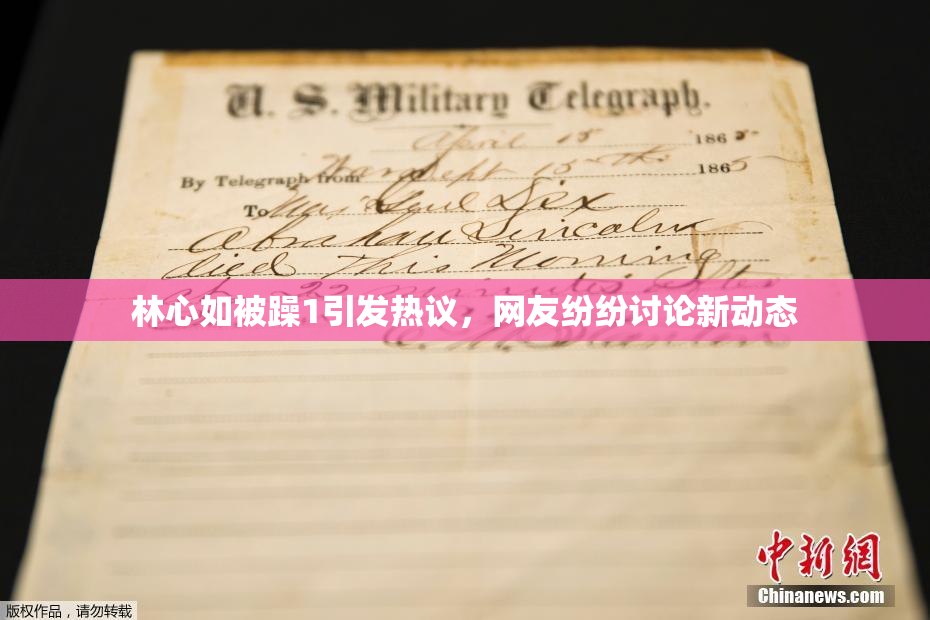 U. S. Military Telegraph.
April 15 1865
By Telegraph from War Dept 15th 1865
To Maj Genl Dix
Abraham Lincoln
died This Morning
at 22 minutes after
林心如被躁1引发热议，网友纷纷讨论新动态
E. M. Stanton
中新網
Chinanews.com
版权作品，请勿转载